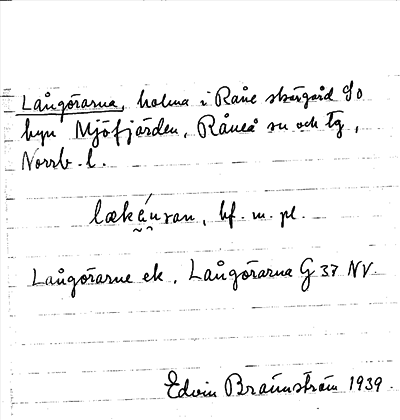 Långörarna, holme i Råne skärgård SO
byn Mjöfjärden, Råneå sn och tg,
Norrb. l.
bf. m. pl.
Långörarne ek. Långörarna G 37 NV.
Edvin Brännström 1939.